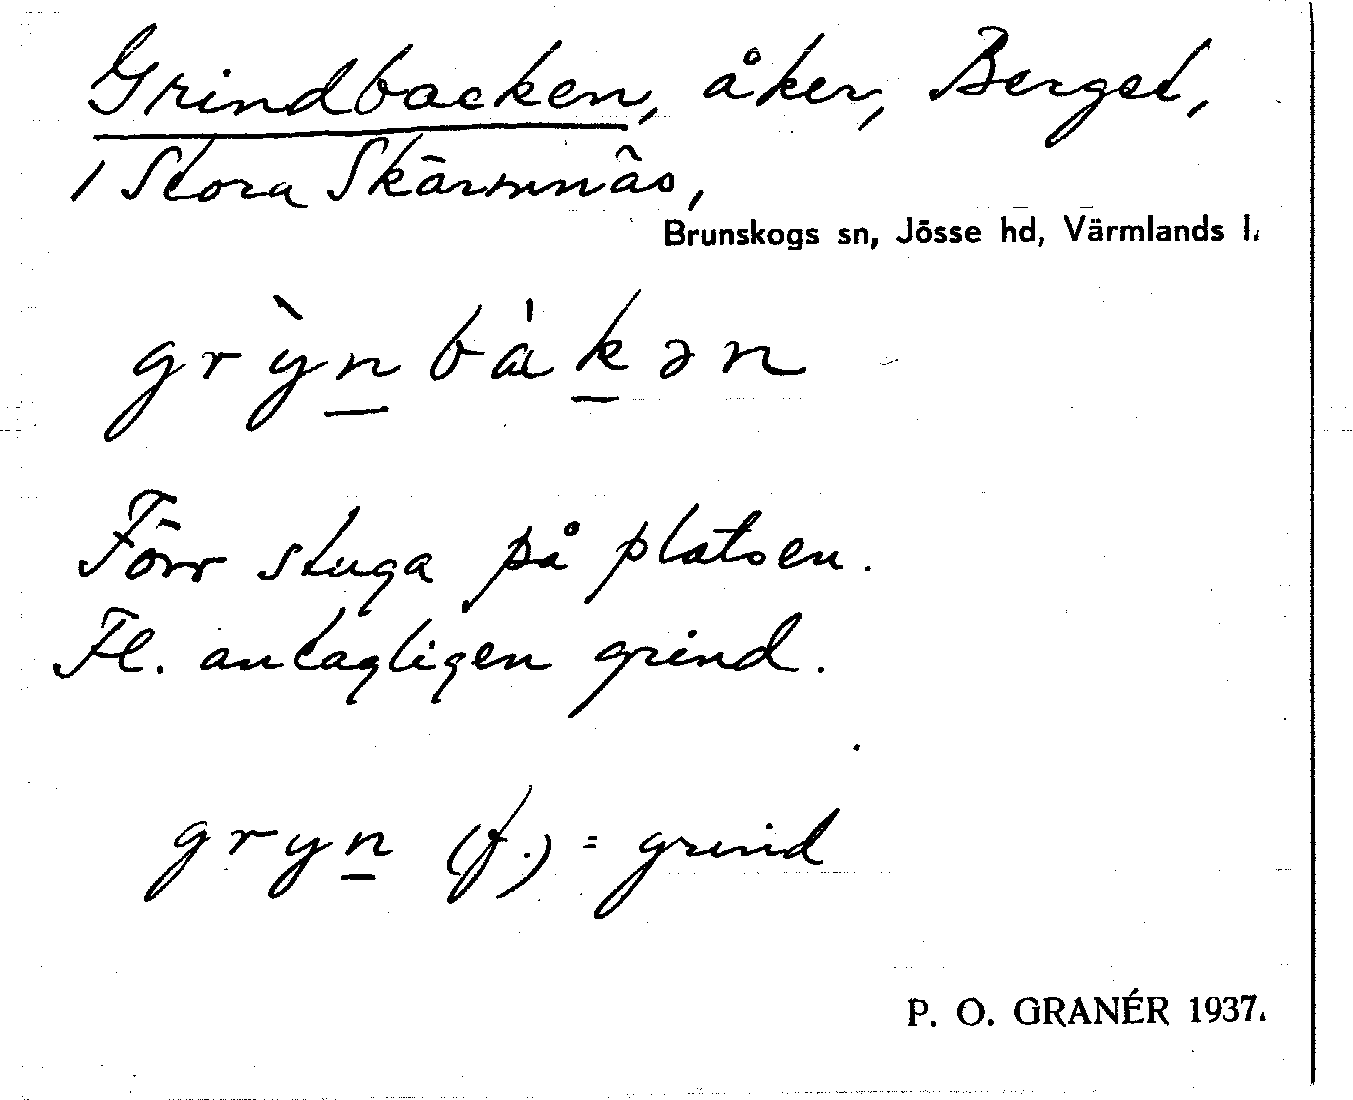 Grindbacken, åker, Berget,
1 Stora Skärmnäs,
Brunskogs sn, Jösse hd, Värmlands l.
grỳn bàkən
Förr stuga på platsen.
Fl. antagligen grind.
gryn (f.) = grind
P. O. GRANÉR 1937.